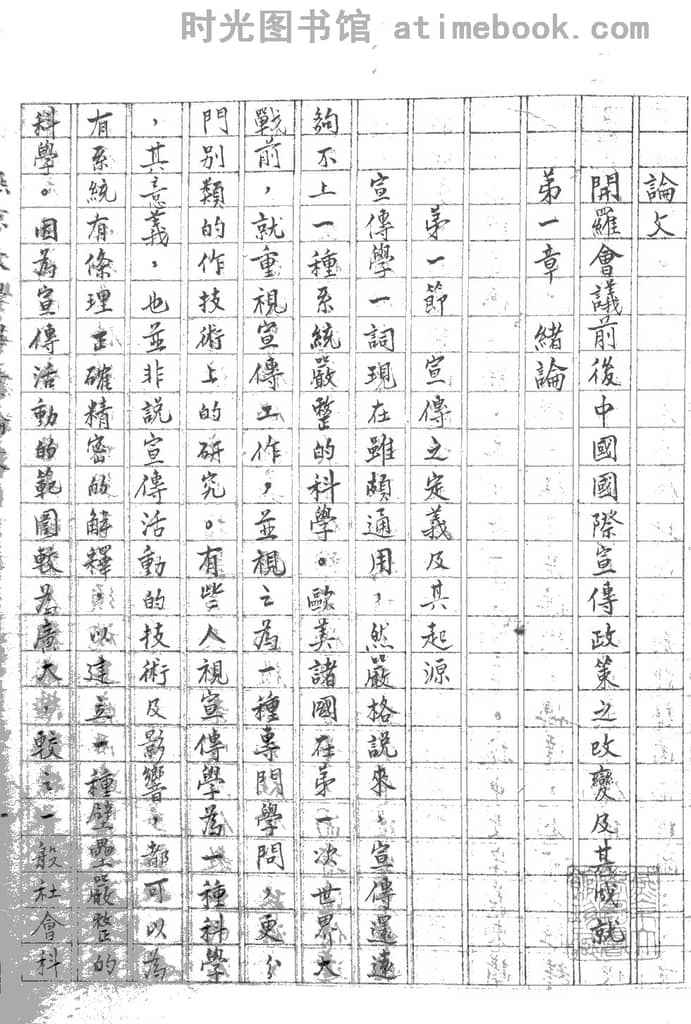 时光图书馆 atimebook.com
論文
開羅會議前後中國國際宣傳政策之改變及其成就
第一章 緒論
第一節 宣傳之定義及其起源
宣傳學一詞現在雖頗通用,然嚴格說來,宣傳還遠
夠不上一種系統嚴整的科學。歐美諸國在第一次世界大
戰前,就重視宣傳工作,並視之為一種專門學問,更分
門別類的作技術上的研究。有些人視宣傳學為一種科學
,其意義,也並非說宣傳活動的技術及影響,都可以為
有系統有條理正確精密的解釋,以建立一種壁壘嚴整的
科學。因為宣傳活動的範圍較為廣大,較之一般社會科